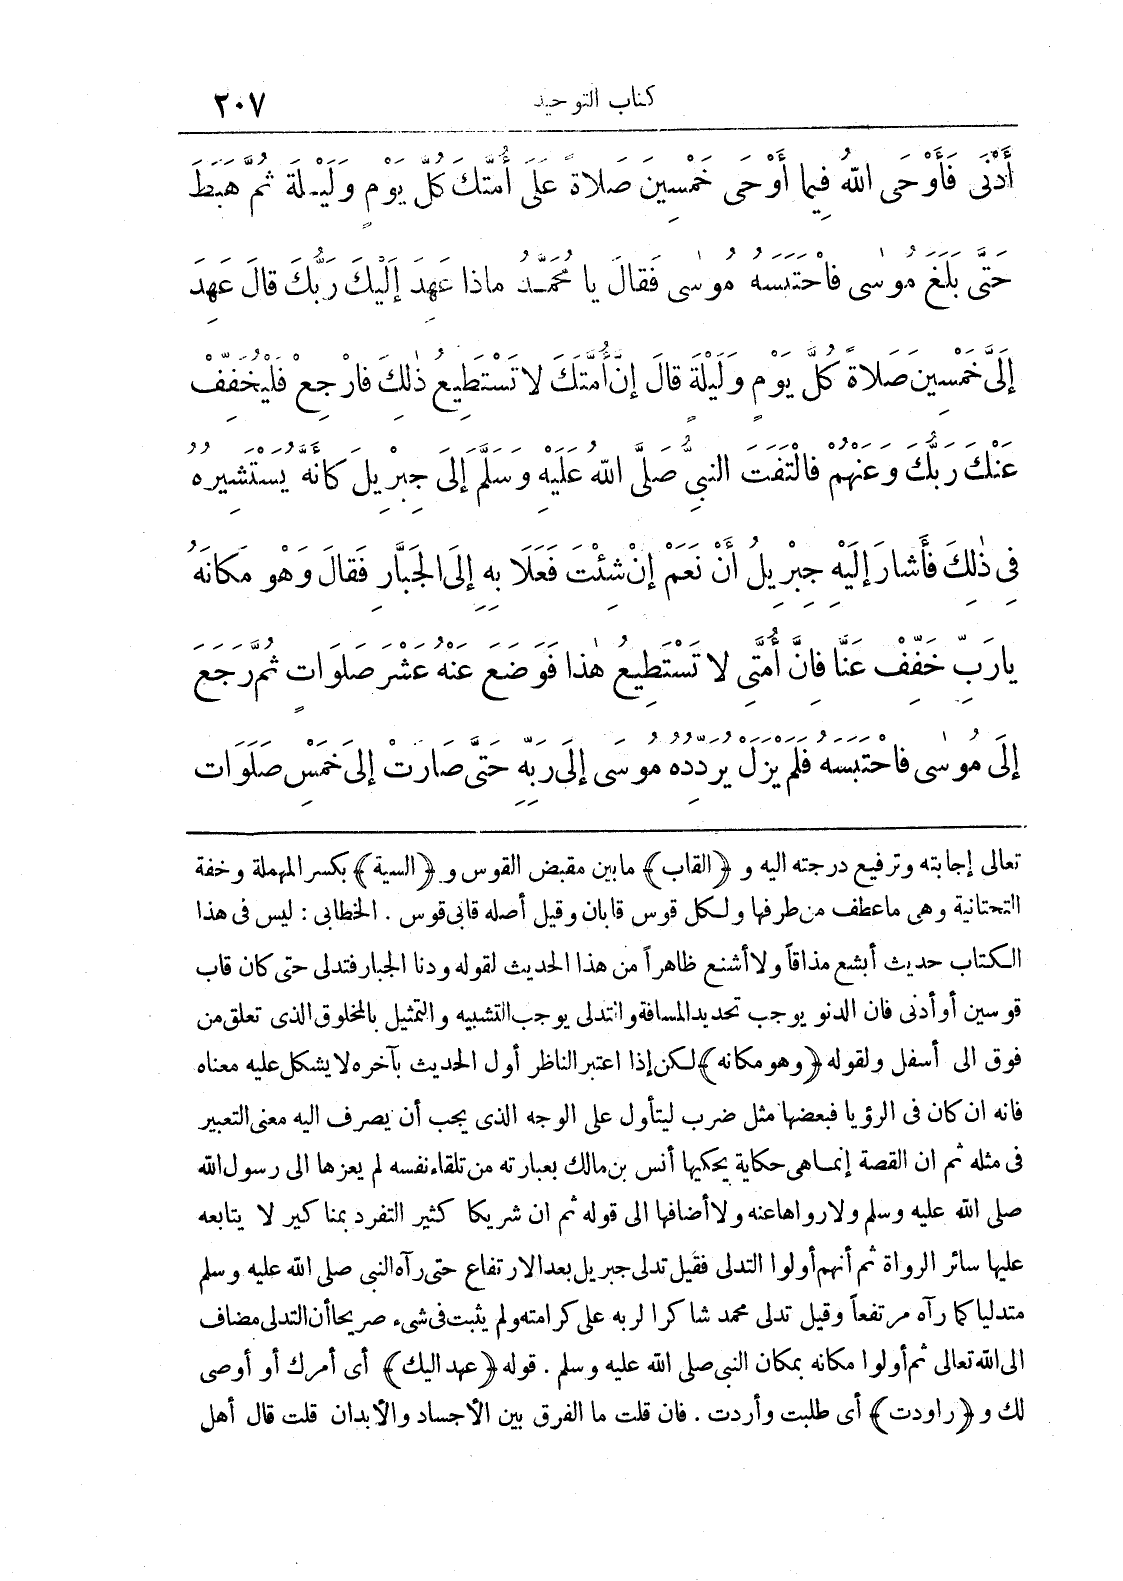 كتاب التوحيد ٢٠٧
أَدْنَى فَأَوْحَى اللهُ فِيما أَوْحَى خَمْسِينَ صَلاةً عَلَى أُمَّتِكَ كُلَّ يَوْمٍ وَلَيْلَةٍ ثُمَّ هَبَطَ
حَتَّى بَلَغَ مُوسٰى فاحْتَبَسَهُ مُوسٰى فَقالَ يا مُحَمَّدُ ماذا عَهِدَ إِلَيْكَ رَبُّكَ قالَ عَهِدَ
إِلَىَّ خَمْسِينَ صَلاةً كُلَّ يَوْمٍ وَلَيْلَةٍ قالَ إِنَّ أُمَّتَكَ لا تَسْتَطِيعُ ذٰلِكَ فارْجِعْ فَلْيُخَفِّفْ
عَنْكَ رَبُّكَ وَعَنْهُمْ فالْتَفَتَ النبىُّ صَلَّى اللهُ عَلَيْهِ وَسَلَّمَ إِلَى جِبْرِيلَ كَأَنَّهُ يَسْتَشِيرُهُ
فِى ذٰلِكَ فَأَشارَ إِلَيْهِ جِبْرِيلُ أَنْ نَعَمْ إِنْ شِئْتَ فَعَلَا بِهِ إِلَى الجَبَّارِ فَقالَ وَهْوَ مَكانَهُ
يارَبِّ خَفِّفْ عَنَّا فإِنَّ أُمَّتِى لا تَسْتَطِيعُ هٰذا فَوَضَعَ عَنْهُ عَشْرَ صَلَوَاتٍ ثُمَّ رَجَعَ
إِلَى مُوسٰى فاحْتَبَسَهُ فَلَمْ يَزَلْ يُرَدِّدُهُ مُوسَى إِلَى رَبِّهِ حَتَّى صَارَتْ إِلَى خَمْسِ صَلَوَات
تعالى إجابته وترفيع درجته اليه و ﴿القاب﴾ مابين مقبض القوس و ﴿السية﴾ بكسر المهملة وخفة
التحتانية وهى ماعطف من طرفها ولكل قوس قابان وقيل أصله قابى قوس . الخطابى : ليس فى هذا
الكتاب حديث أبشع مذاقاً ولا أشنع ظاهراً من هذا الحديث لقوله ودنا الجبار فتدلى حتى كان قاب
قوسين أو أدنى فان الدنو يوجب تحديد المسافة والتدلى يوجب التشبيه والتمثيل بالمخلوق الذى تعلق من
فوق الى أسفل ولقوله ﴿وهو مكانه﴾ لكن إذا اعتبر الناظر أول الحديث بآخره لا يشكل عليه معناه
فانه ان كان فى الرؤيا فبعضها مثل ضرب ليتأول على الوجه الذى يجب أن يصرف اليه معنى التعبير
فى مثله ثم ان القصة إنما هى حكاية يحكيها أنس بن مالك بعبارته من تلقاء نفسه لم يعزها الى رسول الله
صلى الله عليه وسلم ولا رواها عنه ولا أضافها الى قوله ثم ان شريكا كثير التفرد بمناكير لا يتابعه
عليها سائر الرواة ثم أنهم أولوا التدلى فقيل تدلى جبريل بعد الارتفاع حتى رآه النبى صلى الله عليه وسلم
متدليا كما رآه مرتفعاً وقيل تدلى محمد شاكرا لربه على كرامته ولم يثبت فى شىء صريحا أن التدلى مضاف
الى الله تعالى ثم أولوا مكانه بمكان النبى صلى الله عليه وسلم . قوله ﴿عهد اليك﴾ أى أمرك أو أوصى
لك و ﴿راودت﴾ أى طلبت وأردت . فان قلت ما الفرق بين الأجساد والأبدان قلت قال أهل